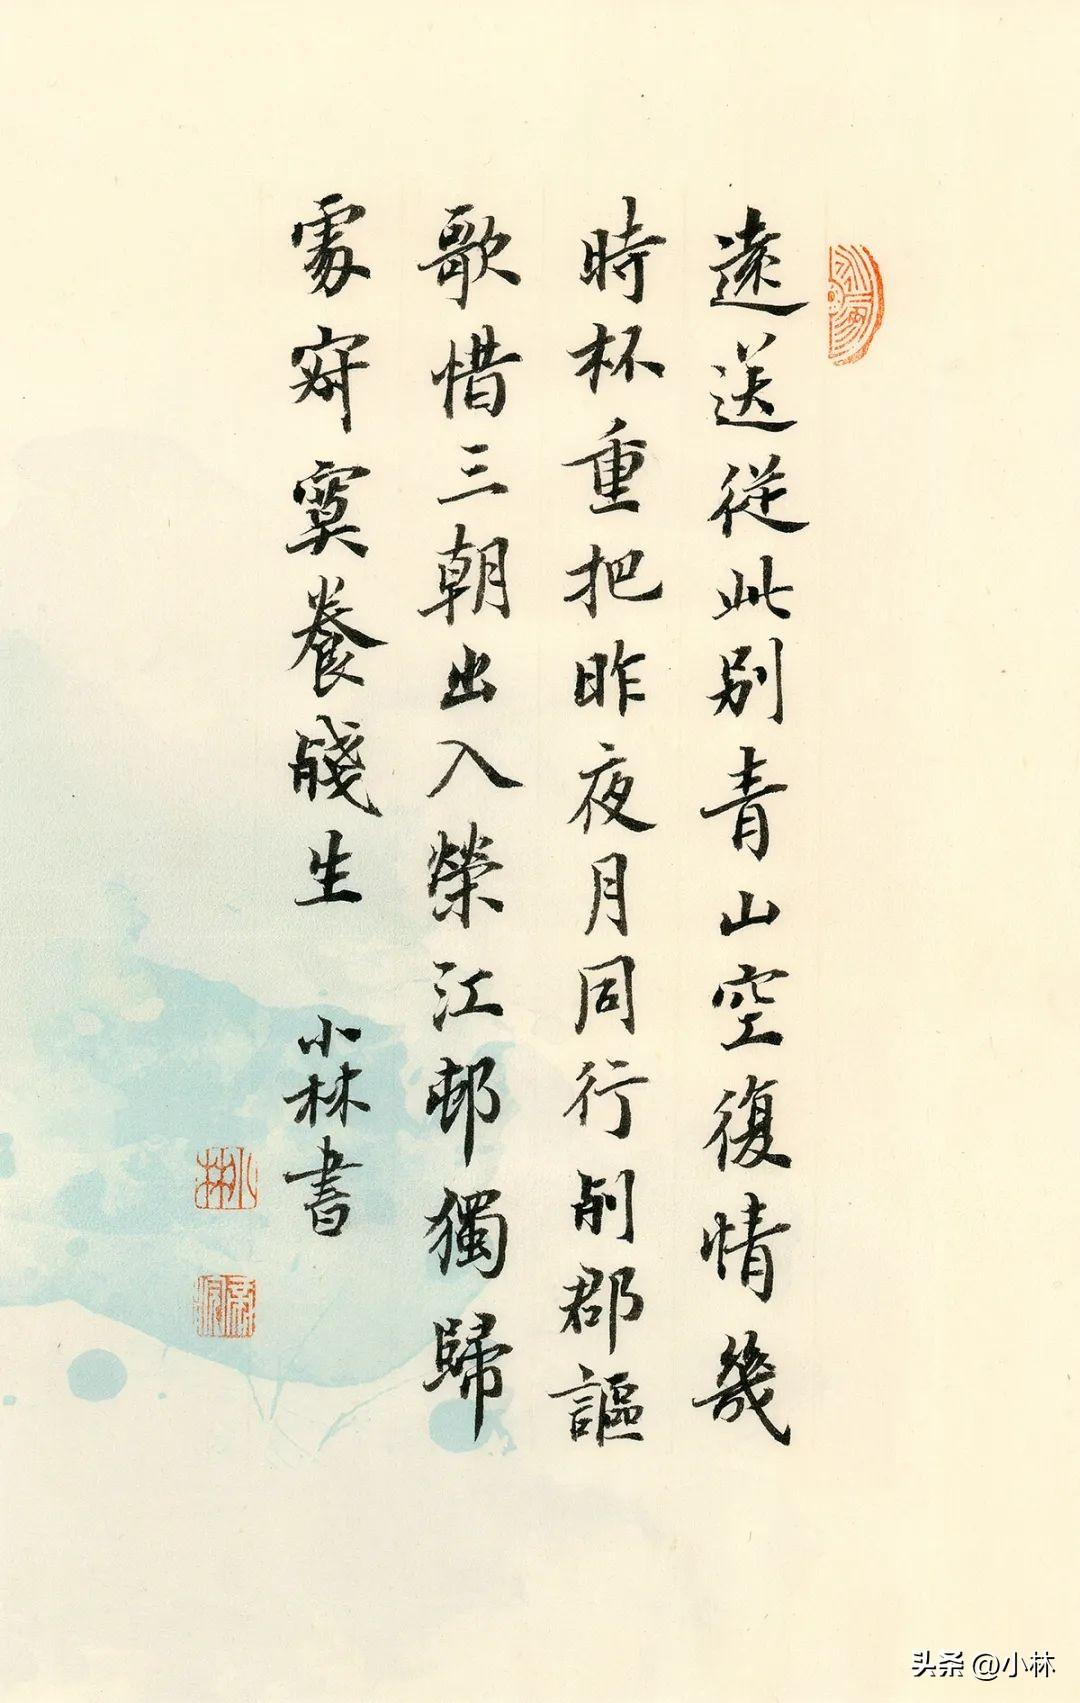 遠送從此別青山空復情幾
時杯重把昨夜月同行列郡謳
歌惜三朝出入榮江邨獨歸
處寂寞養殘生 小林書
小林
头条 @小林